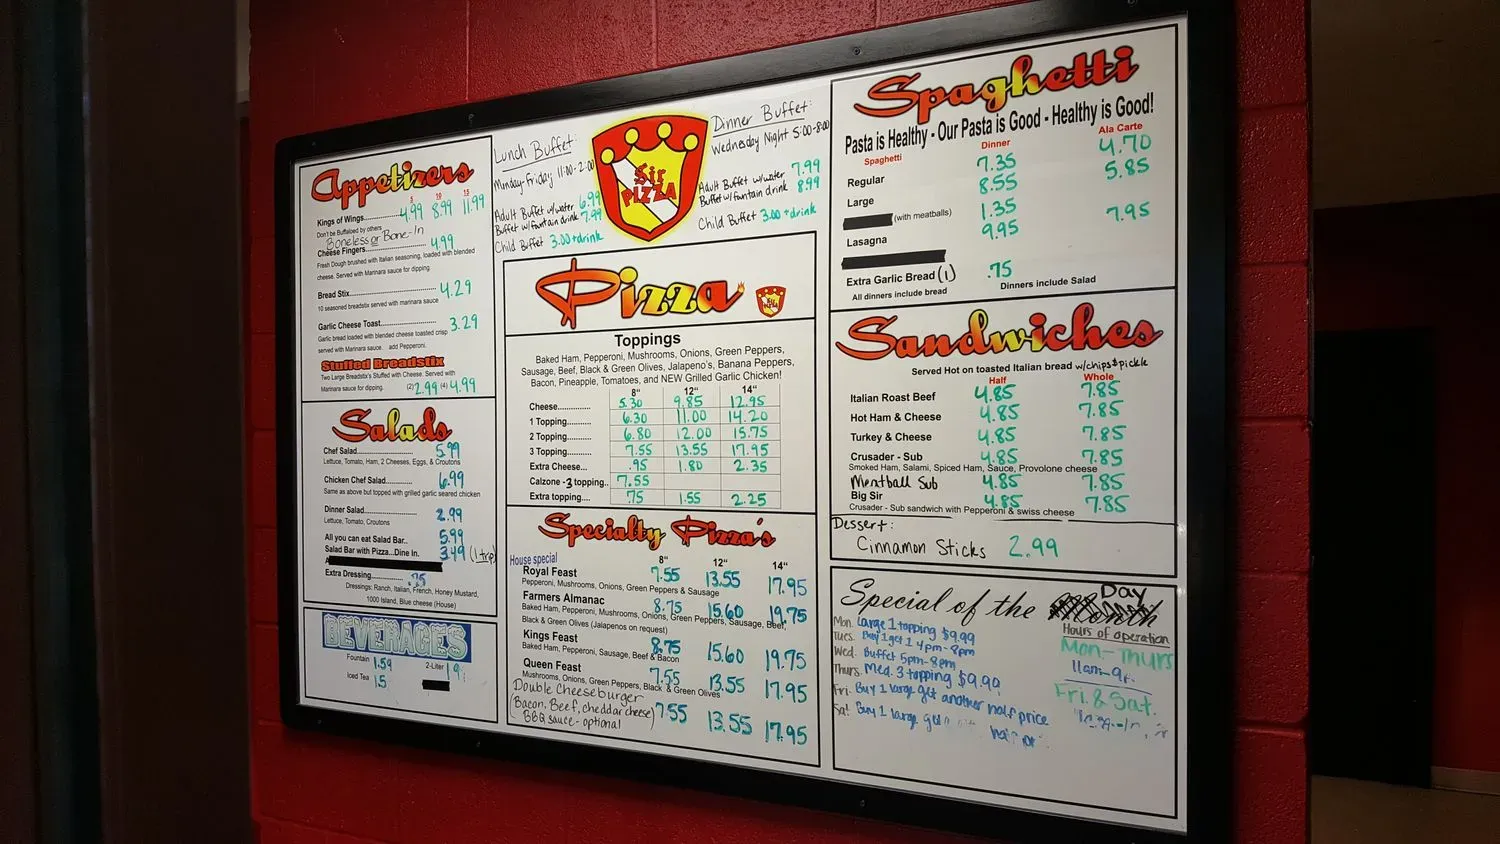 Appetizers
5 10 15
Kings of Wings 4.99 8.99 11.99
Don't be Buffaloed by others
Boneless or Bone-In
Cheese Fingers 4.99
Fresh Dough brushed with Italian seasoning, loaded with blended
cheese. Served with Marinara sauce for dipping.
Bread Stix 4.29
10 seasoned breadstix served with marinara sauce
Garlic Cheese Toast 3.29
Garlic bread loaded with blended cheese toasted crisp
served with Marinara sauce. add Pepperoni.
Stuffed Breadstix
Two Large Breadstix's Stuffed with Cheese. Served with
Marinara sauce for dipping. (2) 2.99 (4) 4.99
Salads
Chef Salad 5.99
Lettuce, Tomato, Ham, 2 Cheeses, Eggs, & Croutons
Chicken Chef Salad 6.99
Same as above but topped with grilled garlic seared chicken
Dinner Salad 2.99
Lettuce, Tomato, Croutons
All you can eat Salad Bar.. 5.99
Salad Bar with Pizza...Dine In. 3.49 (1 trip)
Extra Dressing .75
Dressings: Ranch, Italian, French, Honey Mustard,
1000 Island, Blue cheese (House)
BEVERAGES
Fountain 1.59 2-Liter
Iced Tea
Lunch Buffet:
Monday-Friday 11:00-2:00
Adult Buffet w/water 6.99
Buffet w/fountain drink 7.99
Child Buffet 3.00+drink
Sir
PIZZA
Dinner Buffet:
Wednesday Night 5:00-8:00
Adult Buffet w/water 7.99
Buffet w/fountain drink 8.99
Child Buffet 3.00+drink
Pizza
Sir
PIZZA
Toppings
Baked Ham, Pepperoni, Mushrooms, Onions, Green Peppers,
Sausage, Beef, Black & Green Olives, Jalapeno's, Banana Peppers,
Bacon, Pineapple, Tomatoes, and NEW Grilled Garlic Chicken!
8" 12" 14"
Cheese 5.30 9.85 12.95
1 Topping 6.30 11.00 14.20
2 Topping 6.80 12.00 15.75
3 Topping 7.55 13.55 17.95
Extra Cheese... .95 1.80 2.35
Calzone -3 topping.. 7.55
Extra topping.... .75 1.55 2.25
Specialty Pizza's
House special 8" 12" 14"
Royal Feast 7.55 13.55 17.95
Pepperoni, Mushrooms, Onions, Green Peppers & Sausage
Farmers Almanac 8.75 15.60 19.75
Baked Ham, Pepperoni, Mushrooms, Onions, Green Peppers, Sausage, Beef,
Black & Green Olives (Jalapenos on request)
Kings Feast 8.75 15.60 19.75
Baked Ham, Pepperoni, Sausage, Beef & Bacon
Queen Feast 7.55 13.55 17.95
Mushrooms, Onions, Green Peppers, Black & Green Olives
Double Cheeseburger
(Bacon, Beef, cheddar cheese) 7.55 13.55 17.95
BBQ sauce - optional
Spaghetti
Pasta is Healthy - Our Pasta is Good - Healthy is Good!
Spaghetti Dinner Ala Carte
Regular 7.35 4.70
Large 8.55 5.85
(with meatballs) 1.35
Lasagna 9.95 7.95
Extra Garlic Bread (1) .75
All dinners include bread Dinners include Salad
Sandwiches
Served Hot on toasted Italian bread w/chips & pickle
Half Whole
Italian Roast Beef 4.85 7.85
Hot Ham & Cheese 4.85 7.85
Turkey & Cheese 4.85 7.85
Crusader - Sub 4.85 7.85
Smoked Ham, Salami, Spiced Ham, Sauce, Provolone cheese
Meatball Sub 4.85 7.85
Big Sir 4.85 7.85
Crusader - Sub sandwich with Pepperoni & swiss cheese
Dessert:
Cinnamon Sticks 2.99
Special of the Day
Mon. Large 1 topping $9.99
Tues. Buy 1 get 1 4pm-8pm
Wed. Buffet 5pm-8pm
Thurs. Med. 3 topping $9.99
Fri. Buy 1 large get another half price
Sat. Buy 1 large get
Hours of operation
Mon-Thurs
11am-9
Fri. & Sat.